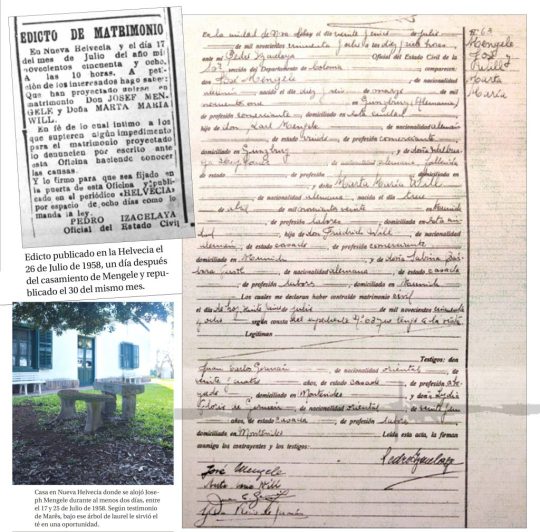 EDICTO DE MATRIMONIO
En Nueva Helvecia y el día 17
del mes de Julio del año mil
novecientos cincuenta y ocho,
A las 10 horas. A pe-
tición de los interesados hago saber:
Que han proyectado unirse en
matrimonio Don JOSEF MEN-
GELE y Doña MARTA MARIA
WILL.
En fé de lo cual intimo a los
que supieren algún impedimento
para el matrimonio proyectado
lo denuncien por escrito ante
esta Oficina haciendo conocer
las causas.
Y lo firmo para que sea fijado en
la puerta de esta Oficina y publi-
cado en el periódico «HELVECIA»
por espacio de ocho días como lo
manda la ley.
PEDRO IZACELAYA
Oficial del Estado Civil
Edicto publicado en la Helvecia el
26 de Julio de 1958, un día después
del casamiento de Mengele y repu-
blicado el 30 del mismo mes.
Casa en Nueva Helvecia donde se alojó Jose-
ph Mengele durante al menos dos días, entre
el 17 y 25 de Julio de 1958. Según testimonio
de Marés, bajo ese árbol de laurel le sirvió el
té en una oportunidad.
En la ciudad de Nva Helvecia el día veinte y cinco de Julio
de mil novecientos cincuenta y ocho a las diez y horas, ante
mi Pedro Izacelaya Oficial del Estado Civil de la
Sección del Departamento de Colonia comparecen:
don José Mengele de nacionalidad
alemán nacido el diez y seis de marzo de mil
novecientos once en Gunzburg (Alemania)
de profesión comerciante domiciliado en esta ciudad
hijo de don Karl Mengele de nacionalidad alemán
de estado viudo de profesión comerciante
domiciliado en Gunzburg y de doña Walbur-
ga de nacionalidad alemana fallecida
y doña Marta María Will
de nacionalidad alemana, nacida el
de mil novecientos veinte en
de profesión labores domiciliada en esta ciu-
dad, hija de don Friedrich Will de nacionalidad
alemán, de estado casado de profesión comerciante
domiciliado en y de doña Sabina
de nacionalidad alemana, de estado casada
de profesión labores domiciliada en
Los cuales me declaran haber contraído matrimonio civil
el día de hoy veinte y cinco de julio de mil novecientos cincuenta
y ocho según consta del expediente Nº 63 que tengo a la vista
Legitiman
Testigos: don
Juan Carlos de nacionalidad oriental de
veinte y cuatro años, de estado casado de profesión
domiciliado en Montevideo y don Lydia
de nacionalidad oriental de
años, de estado casada de profesión labores
domiciliado en Montevideo Leída esta acta, la firman
conmigo los contrayentes y los testigos:
Pedro Izacelaya
José Mengele
Will
Nº 63
Mengele
José
y Will
Marta
María